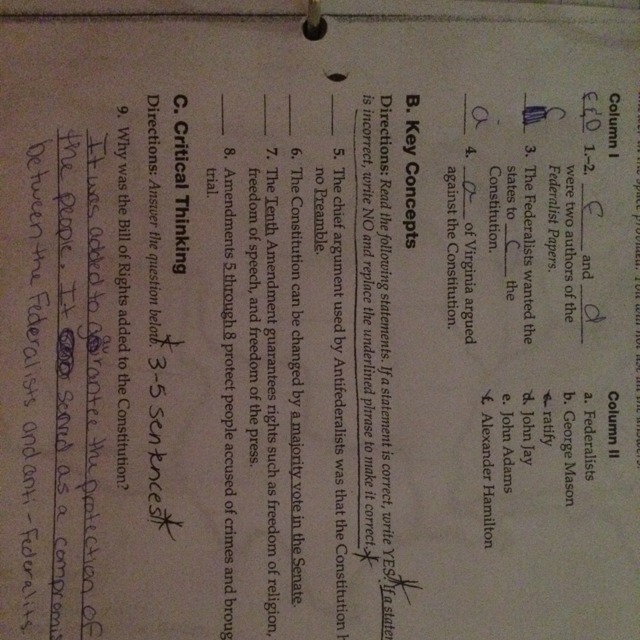 Column I
Column II
f&d 1.–2. f and d
were two authors of the
Federalist Papers.
a. Federalists
b. George Mason
c. ratify
d. John Jay
e. John Adams
f. Alexander Hamilton
c 3. The Federalists wanted the
states to c the
Constitution.
a 4. a of Virginia argued
against the Constitution.
B. Key Concepts
Directions: Read the following statements. If a statement is correct, write YES. If a
is incorrect, write NO and replace the underlined phrase to make it correct.
5. The chief argument used by Antifederalists was that the Constitution
no Preamble.
6. The Constitution can be changed by a majority vote in the Senate.
7. The Tenth Amendment guarantees rights such as freedom of religion,
freedom of speech, and freedom of the press.
8. Amendments 5 through 8 protect people accused of crimes and
trial.
C. Critical Thinking
Directions: Answer the question below. * 3-5 sentences *
9. Why was the Bill of Rights added to the Constitution?
It was added to guarantee the protection of
the people. It as a
between the Federalists and anti-